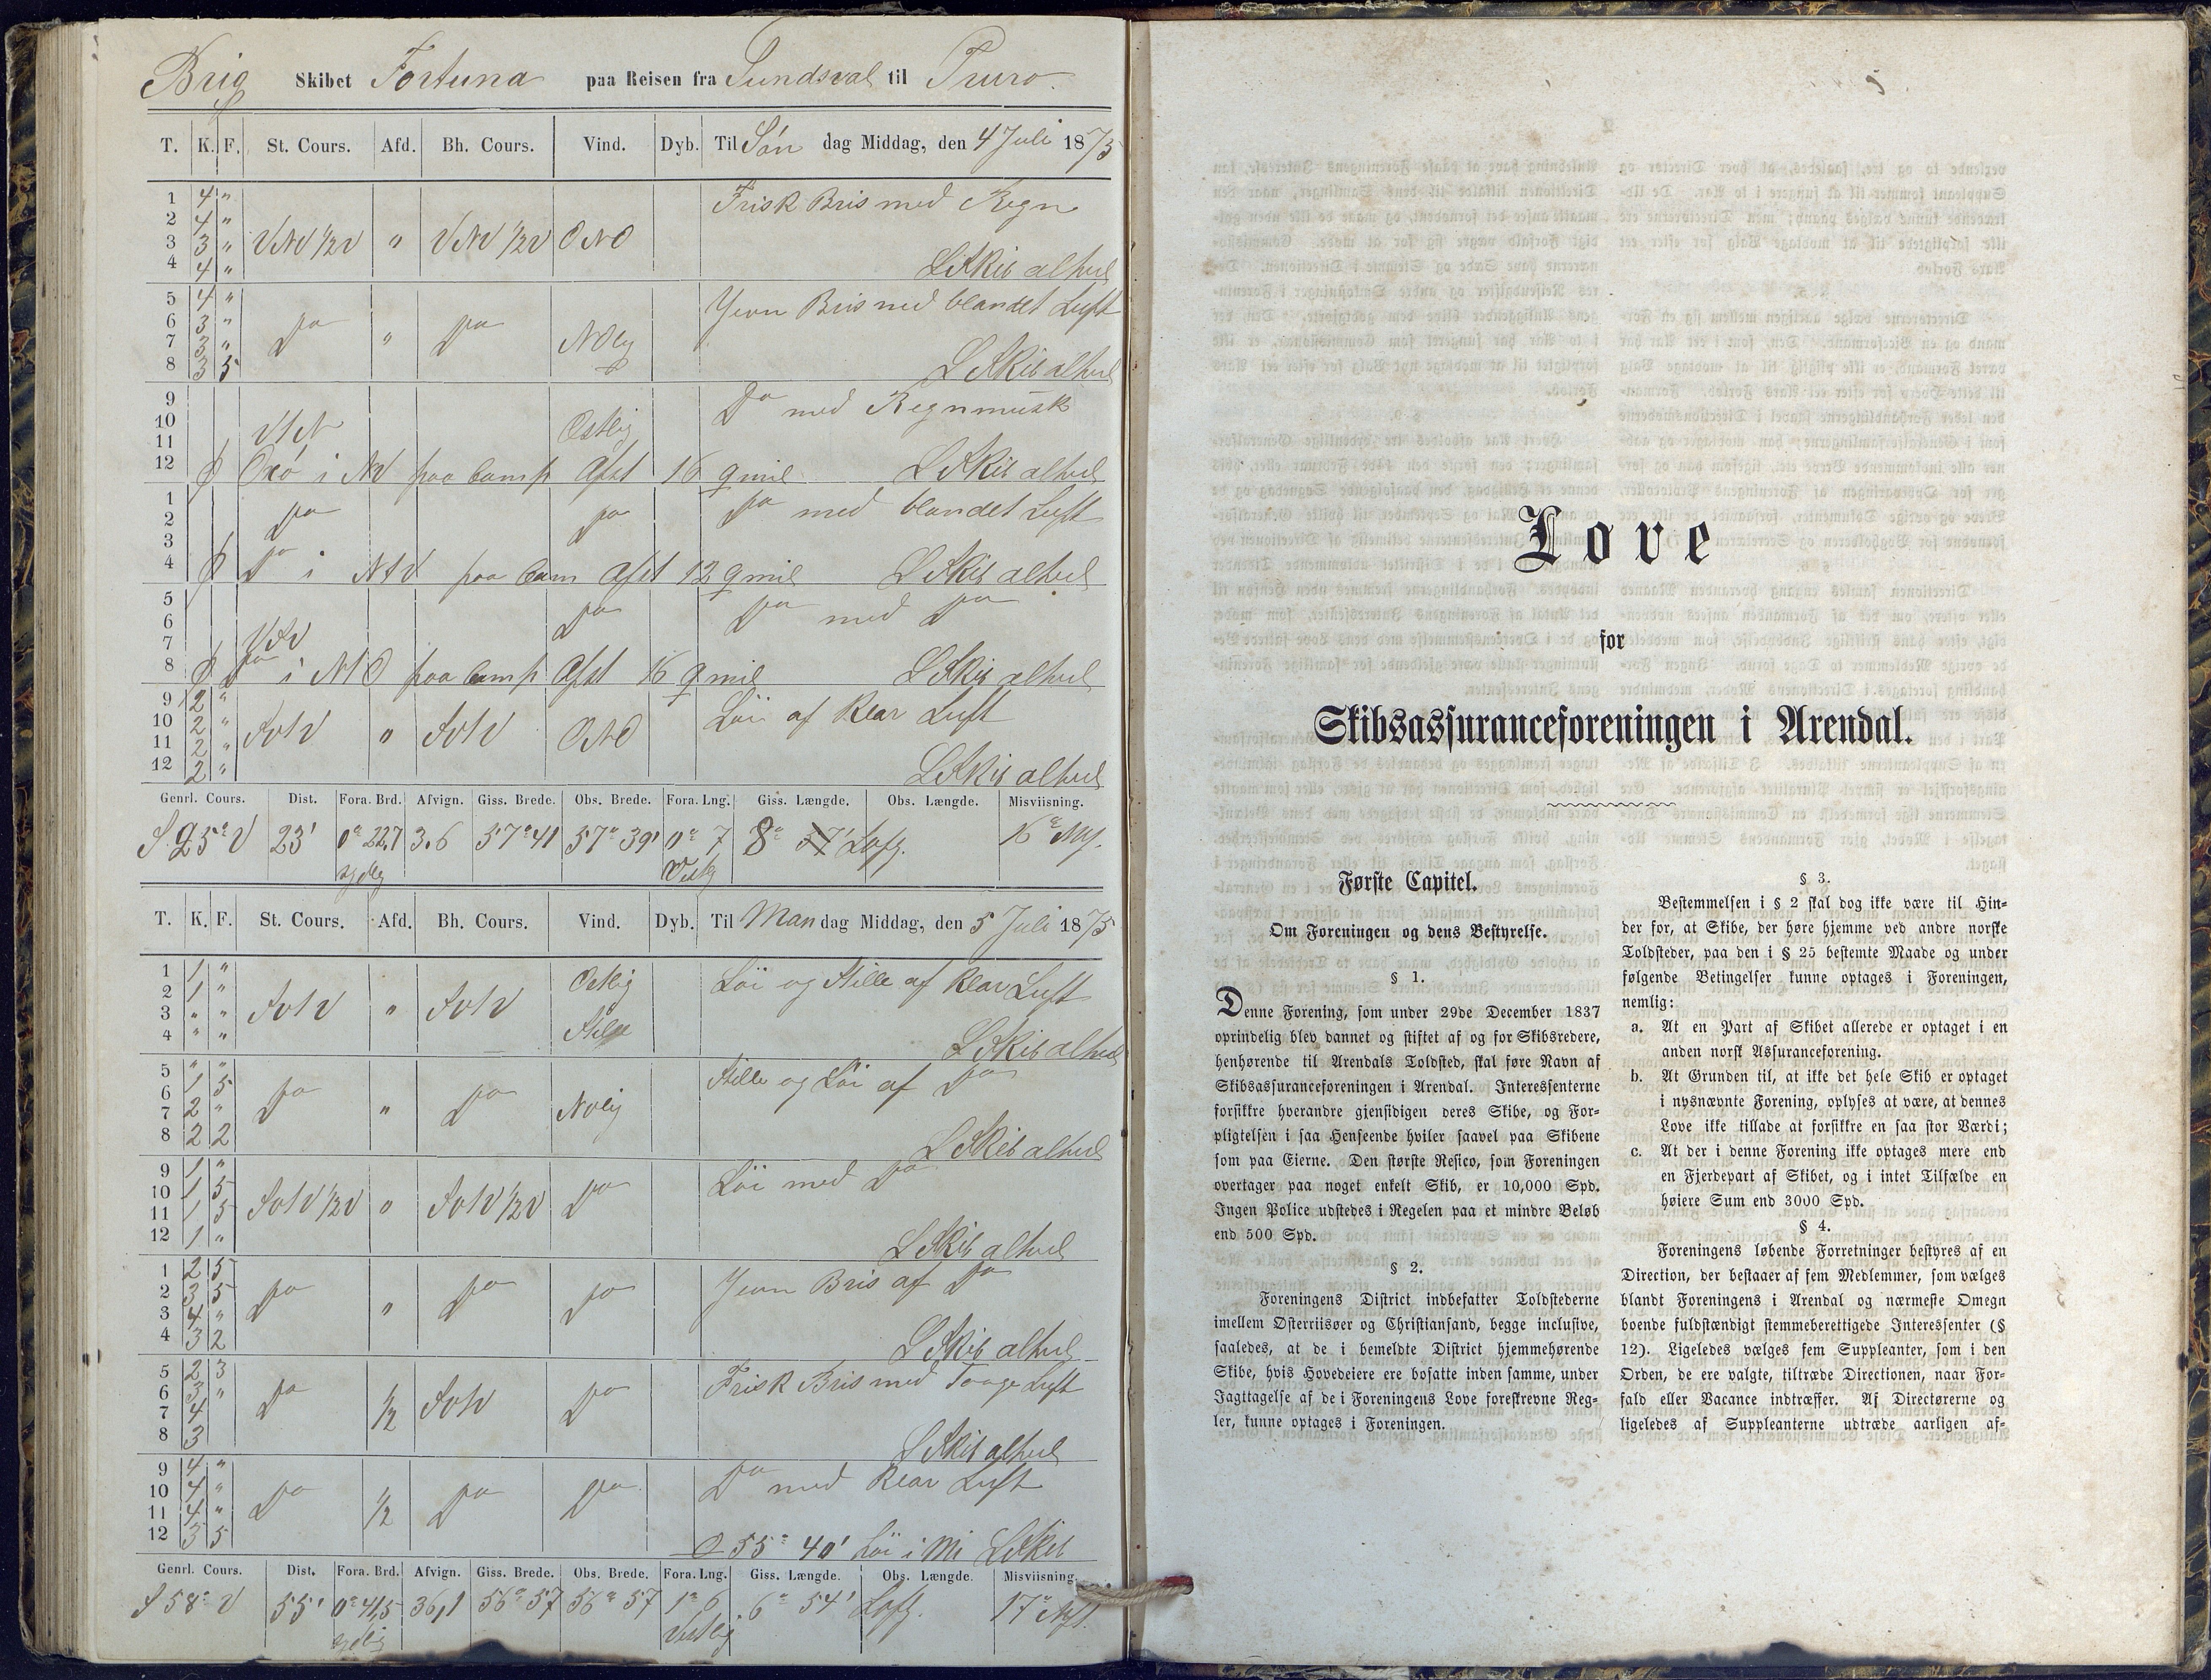 Brig Skibet Fortuna paa Reisen fra Sundsval til Truro.
T. K. F. St. Cours. Afd. Bh. Cours. Vind. Dyb. Til Søn dag Middag, den 4 Juli 1875
1 4 " Frisk Bris med Regn
2 4 "
3 3 " VNV 1/2 V " VNV 1/2 V ONO
4 4 " L Skib alhvel
5 4 " Jevn Bris med blandet Luft
6 3 "
7 3 " Do " Do NOlig
8 3 5 L Skib alhvel
9 Do med Regnmusk
10 Ostlig
11
12 Oxö i NV paa Comp Afst 16 qmil L Skib alhvel
1 Do Do Do med blandet Luft
2
3
4 Do i paa Com Afst 12 qmil L Skib alhvel
5 Do Do med Do
6
7
8 Do i paa Comp Afst 16 qmil L Skib alhvel
9 2 " Löi af Klar Luft
10 2 "
11 2 " " ONO
12 2 " L Skib alhvel
Genrl. Cours. Dist. Fora. Brd. Afvign. Giss. Brede. Obs. Brede. Fora. Lng. Giss. Længde. Obs. Længde. Misviisning.
23' 0° 22,7 3.6 57° 41 57° 39' 0° 7 8° 16°
T. K. F. St. Cours. Afd. Bh. Cours. Vind. Dyb. Til Man dag Middag, den 5 Juli 1875
1 1 " Ostlig Löi og Stille af Klar Luft
2 1 "
3 " " "
4 " " Stille L Skib alhvel
5 " " Stille og Löi af Do
6 1 5
7 2 " Do " Do NOlig
8 2 2 L Skib alhvel
9 1 " Löi med Do
10 1 5
11 1 5 " Do
12 1 " L Skib alhvel
1 2 5 Jevn Bris af Do
2 3 5 Do " Do Do
3 4 "
4 3 2 L Skib alhvel
5 2 3 Frisk Bris med Taage Luft
6 3 " Do 1/2 Do
7 4
8 3 L Skib alhvel
9 4 " Do med Klar Luft
10 4 "
11 4 " Do 1/2 Do Do
12 3 5 55° 40' L Skib
Genrl. Cours. Dist. Fora. Brd. Afvign. Giss. Brede. Obs. Brede. Fora. Lng. Giss. Længde. Obs. Længde. Misviisning.
S 58° V 55' 0° 41,5 36,1 56° 57 56° 57 1° 6 6° 54' 17°
Vestlig
Love
for
Skibsassuranceforeningen i Arendal.
Første Capitel.
Om Foreningen og dens Bestyrelse.
§ 1.
Denne Forening, som under 29de December 1837
oprindelig blev dannet og stiftet af og for Skibsredere,
henhørende til Arendals Toldsted, skal føre Navn af
Skibsassuranceforeningen i Arendal. Interessenterne
forsikkre hverandre gjensidigen deres Skibe, og For-
pligtelsen i saa Henseende hviler saavel paa Skibene
som paa Eierne. Den største Risico, som Foreningen
overtager paa noget enkelt Skib, er 10,000 Spd.
Ingen Police udstedes i Regelen paa et mindre Beløb
end 500 Spd.
§ 2.
Foreningens District indbefatter Toldstederne
imellem Østerriisøer og Christiansand, begge inclusive,
saaledes, at de i bemeldte District hjemmehørende
Skibe, hvis Hovedeiere ere bosatte inden samme, under
Iagttagelse af de i Foreningens Love foreskrevne Reg-
ler, kunne optages i Foreningen.
§ 3.
Bestemmelsen i § 2 skal dog ikke være til Hin-
der for, at Skibe, der høre hjemme ved andre norske
Toldsteder, paa den i § 25 bestemte Maade og under
følgende Betingelser kunne optages i Foreningen,
nemlig:
a. At en Part af Skibet allerede er optaget i en
anden norsk Assuranceforening.
b. At Grunden til, at ikke det hele Skib er optaget
i nysnævnte Forening, oplyses at være, at dennes
Love ikke tillade at forsikkre en saa stor Værdi;
c. At der i denne Forening ikke optages mere end
en Fjerdepart af Skibet, og i intet Tilfælde en
høiere Sum end 3000 Spd.
§ 4.
Foreningens løbende Forretninger bestyres af en
Direction, der bestaaer af fem Medlemmer, som vælges
blandt Foreningens i Arendal og nærmeste Omegn
boende fuldstændigt stemmeberettigede Interessenter (§
12). Ligeledes vælges fem Suppleanter, som i den
Orden, de ere valgte, tiltræde Directionen, naar For-
fald eller Vacance indtræffer. Af Directørerne og
ligeledes af Suppleanterne udtræde aarligen af-